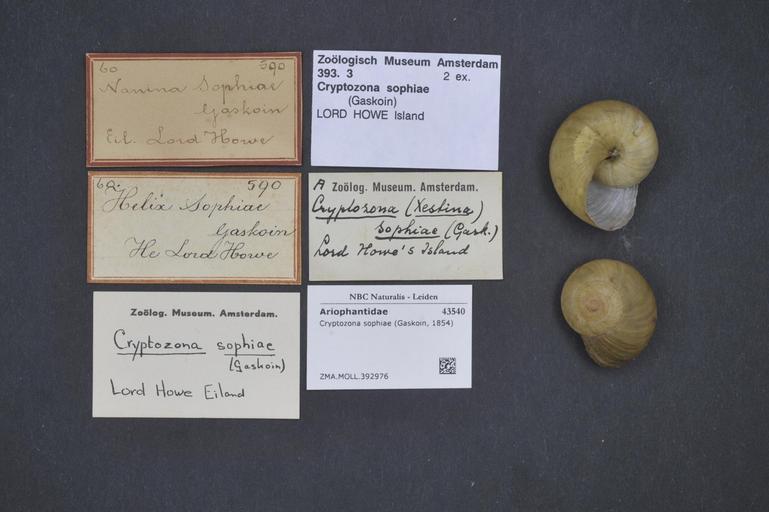 60 590
Nanina Sophiae
Gaskoin
Eil. Lord Howe
Zoölogisch Museum Amsterdam
393. 3 2 ex.
Cryptozona sophiae
(Gaskoin)
LORD HOWE Island
60. 590
Helix Sophiae
Gaskoin
He Lord Howe
A Zoölog. Museum. Amsterdam.
Cryptozona (Xestina)
sophiae (Gask.)
Lord Howe's Island
Zoölog. Museum. Amsterdam.
Cryptozona sophiae
(Gaskoin)
Lord Howe Eiland
NBC Naturalis - Leiden
Ariophantidae 43540
Cryptozona sophiae (Gaskoin, 1854)
ZMA.MOLL.392976